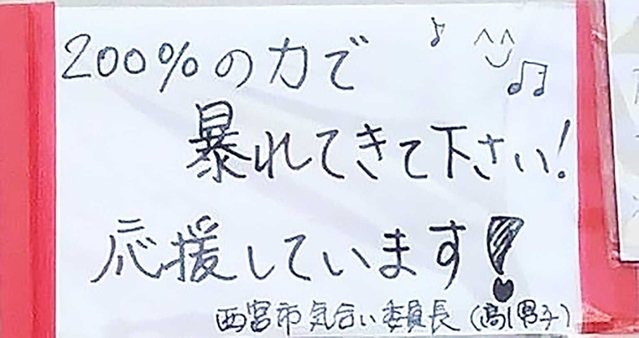 200%の力で
暴れてきて下さい!
応援しています!
西宮市気合い委員長(高1男子)